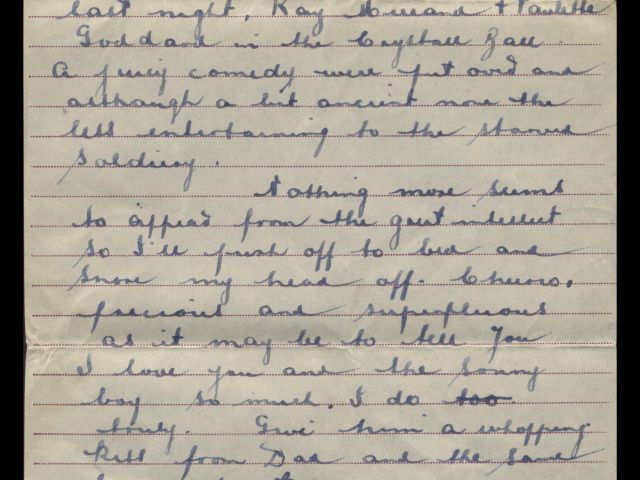 last night, Ray Milland + Paulette
Goddard in the Crystall Ball
A juicy comedy were put over and
although a bit ancient none the
less entertaining to the starved
soldiery.
Nothing more seems
to appear from the great intellect
so I'll push off to bed and
snore my head off. Cheerio,
precious and superfluous
as it may be to tell You
I love you and the sonny
boy so much. I do too
truly. Give him a whopping
kiss from Dad and the same